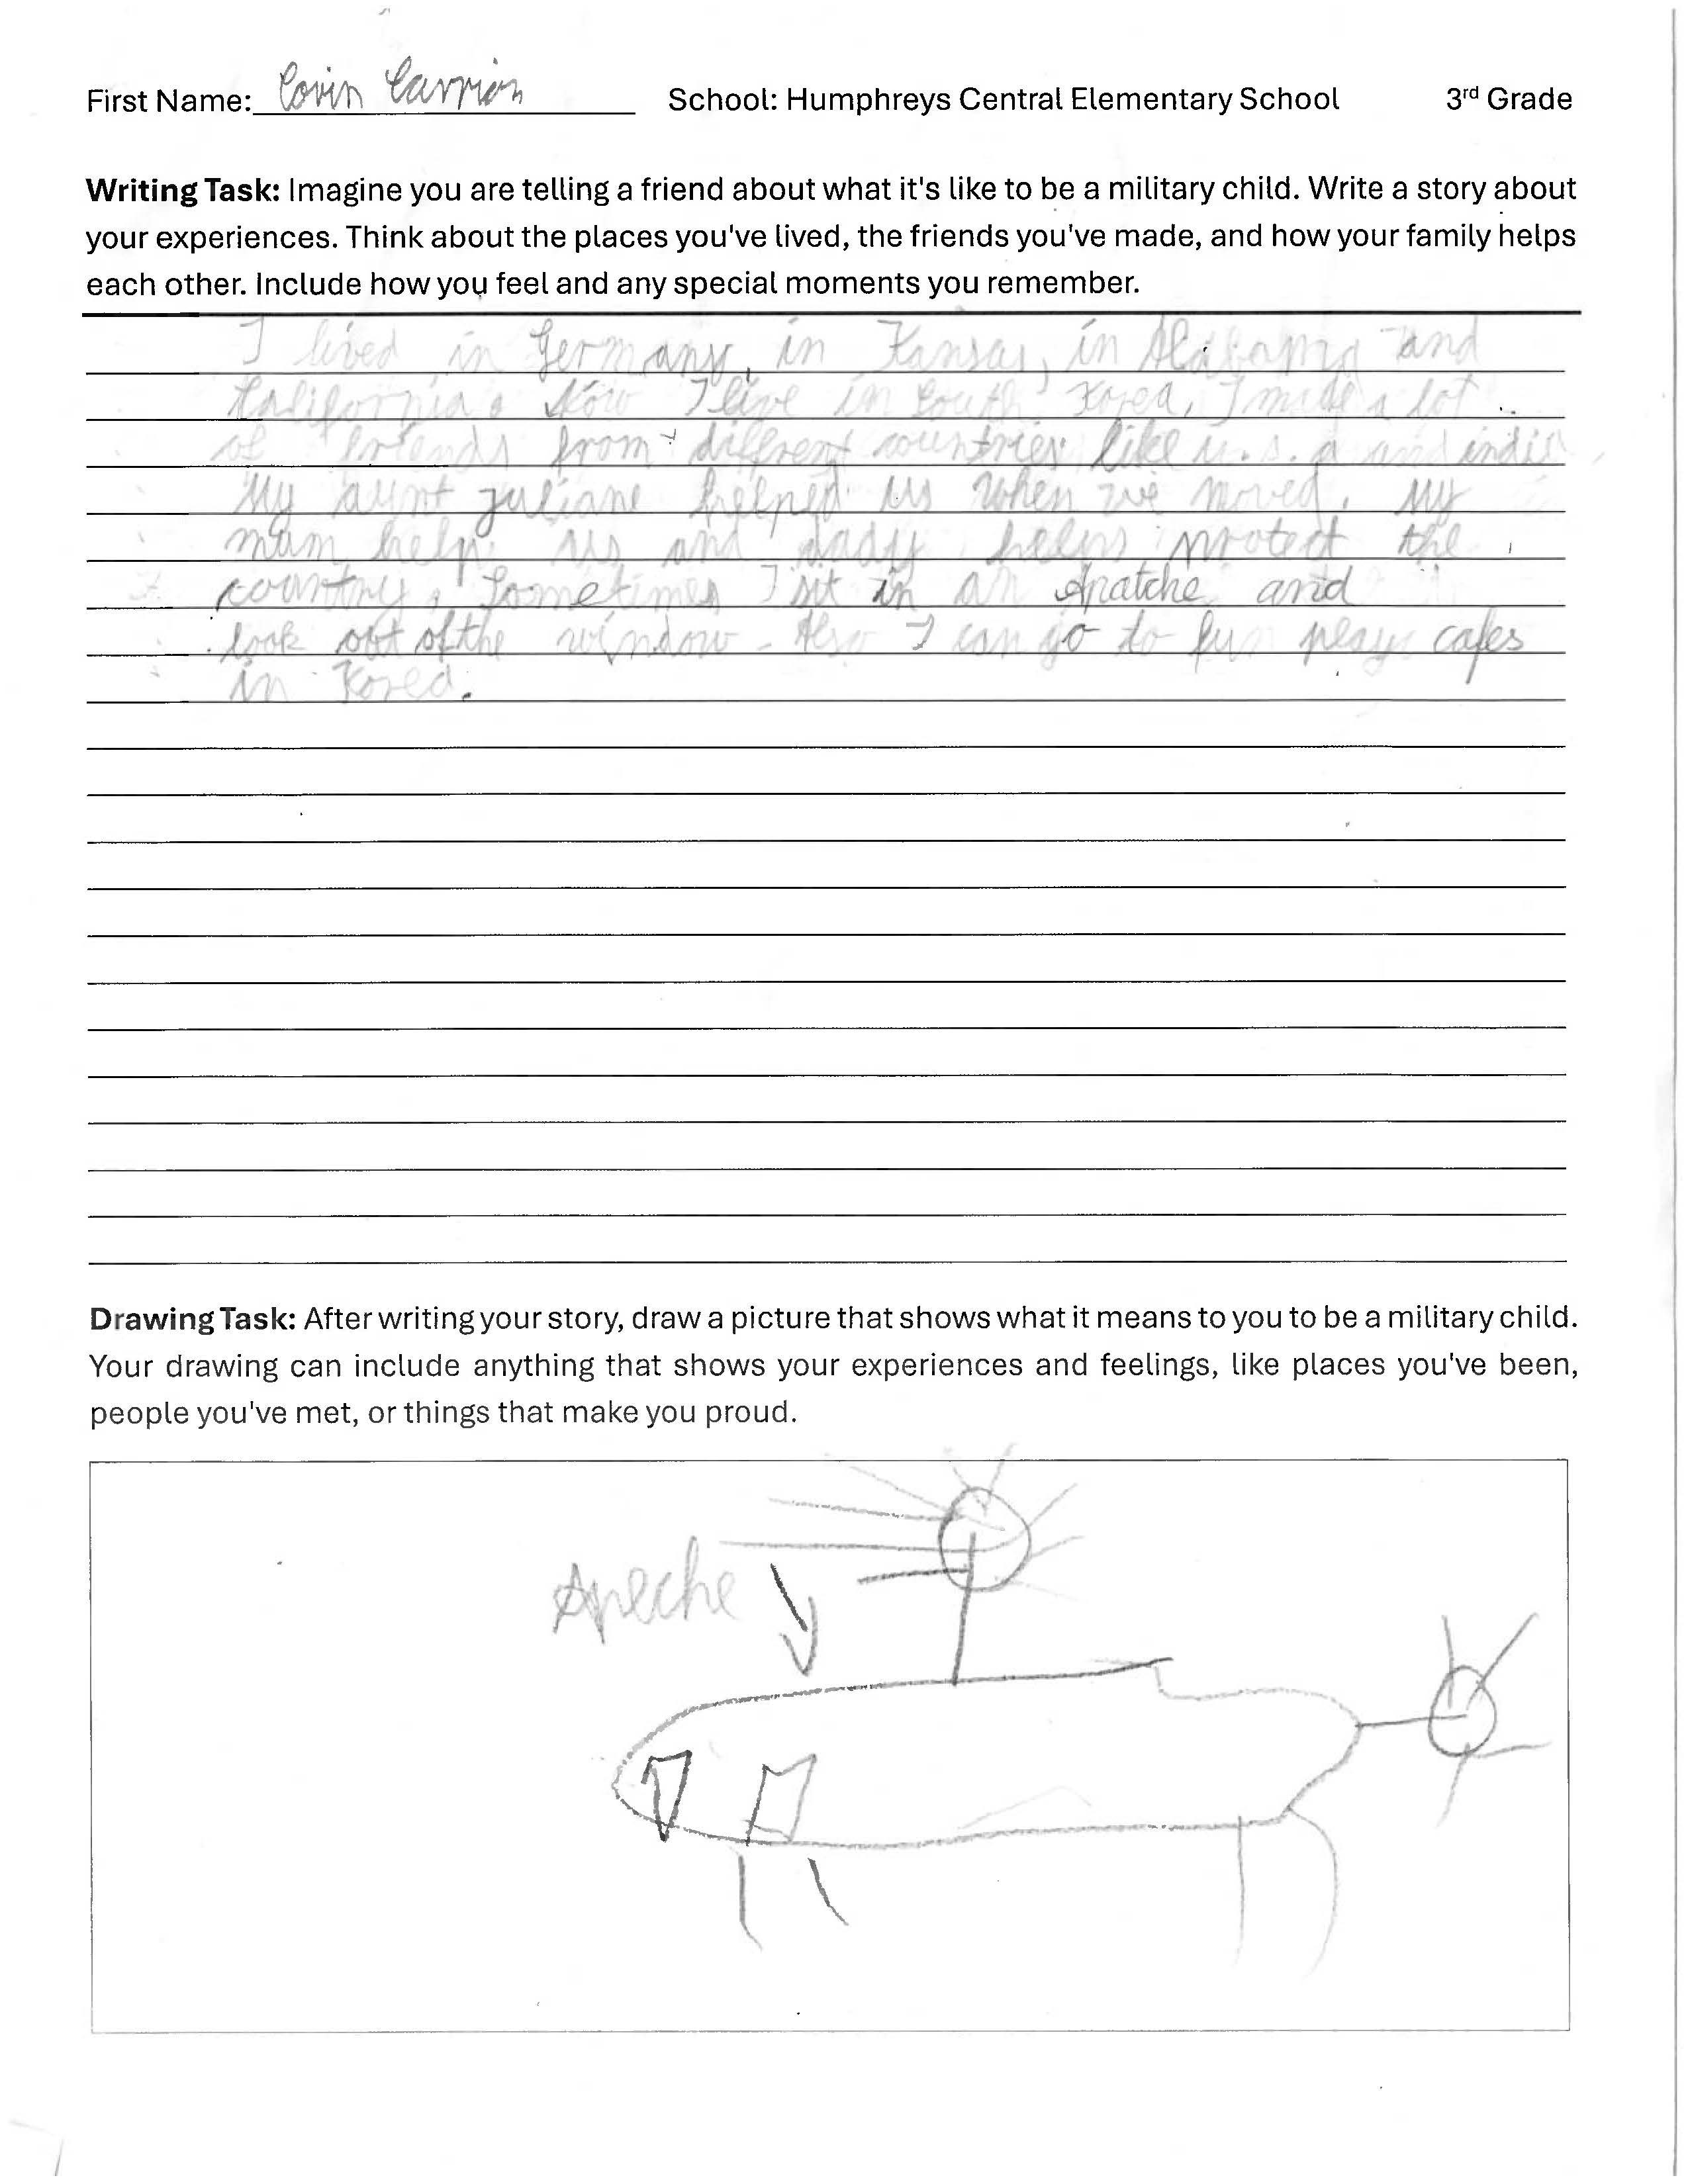 First Name: Covin Carrion School: Humphreys Central Elementary School 3rd Grade
Writing Task: Imagine you are telling a friend about what it's like to be a military child. Write a story about
your experiences. Think about the places you've lived, the friends you've made, and how your family helps
each other. Include how you feel and any special moments you remember.
I lived in Germany, in Kansas, in Alabama and
California. Now I live in South Korea, I made a lot
of friends from different countries like u.s.a and india
My aunt juliane helped us when we moved. My
mum help us and dady helps protect the
country. Sometimes I sit in an Apatche and
look out of the window. Also I can go to fun play cafes
in Korea.
Drawing Task: After writing your story, draw a picture that shows what it means to you to be a military child.
Your drawing can include anything that shows your experiences and feelings, like places you've been,
people you've met, or things that make you proud.
Apeche